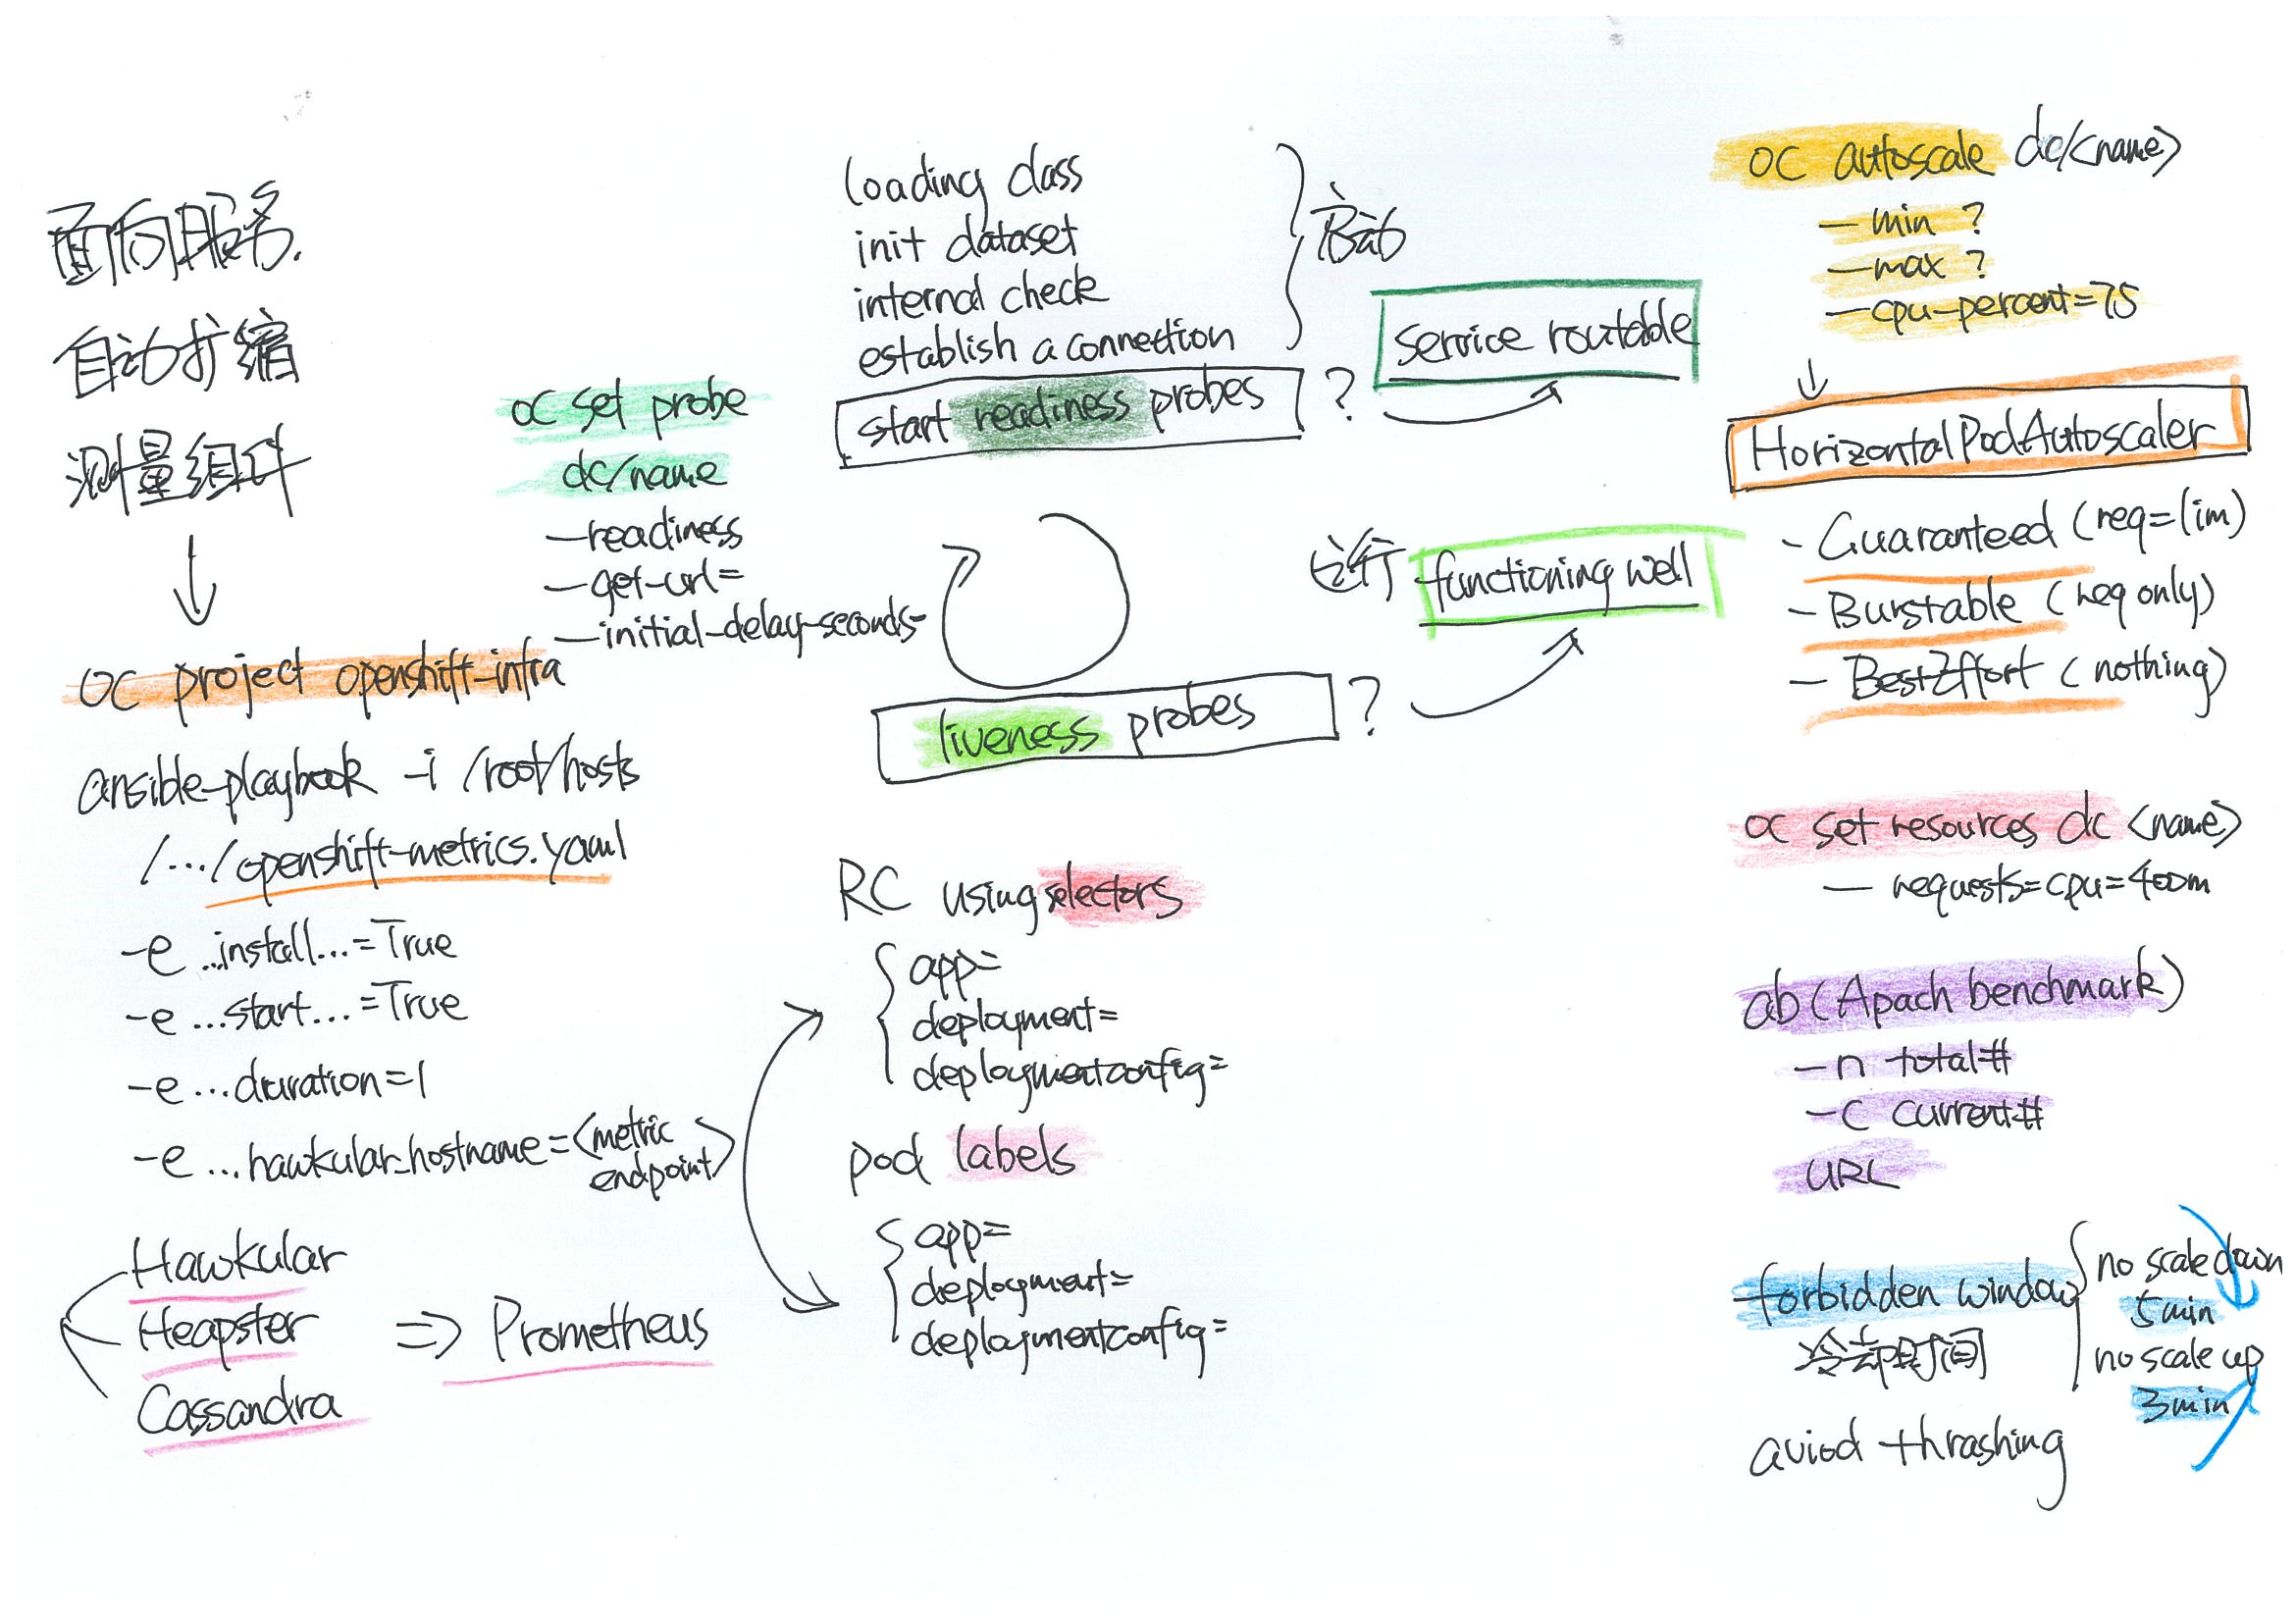 面向服务.
自动扩缩
测量组件
oc project openshift-infra
ansible-playbook -i /root/hosts
/.../openshift-metrics.yaml
-e ...install...=True
-e ...start...=True
-e ...duration=1
-e ...hawkular_hostname=<metric
endpoint>
Hawkular
Heapster
Cassandra
=> Prometheus
oc set probe
dc/name
-readiness
-get-url=
-initial-delay-seconds=
loading class
init dataset
internal check
establish a connection
启动
start readiness probes ?
service routable
运行 functioning well
liveness probes ?
RC using selectors
app=
deployment=
deploymentconfig=
pod labels
app=
deployment=
deploymentconfig=
oc autoscale dc/<name>
-min ?
-max ?
-cpu-percent=75
HorizontalPodAutoscaler
- Guaranteed (req=lim)
- Burstable (req only)
- BestEffort (nothing)
oc set resources dc <name>
- requests=cpu=400m
ab (Apach benchmark)
-n total#
-c current#
URL
forbidden window
冷却时间
no scale down
5min
no scale up
3min
aviod thrashing